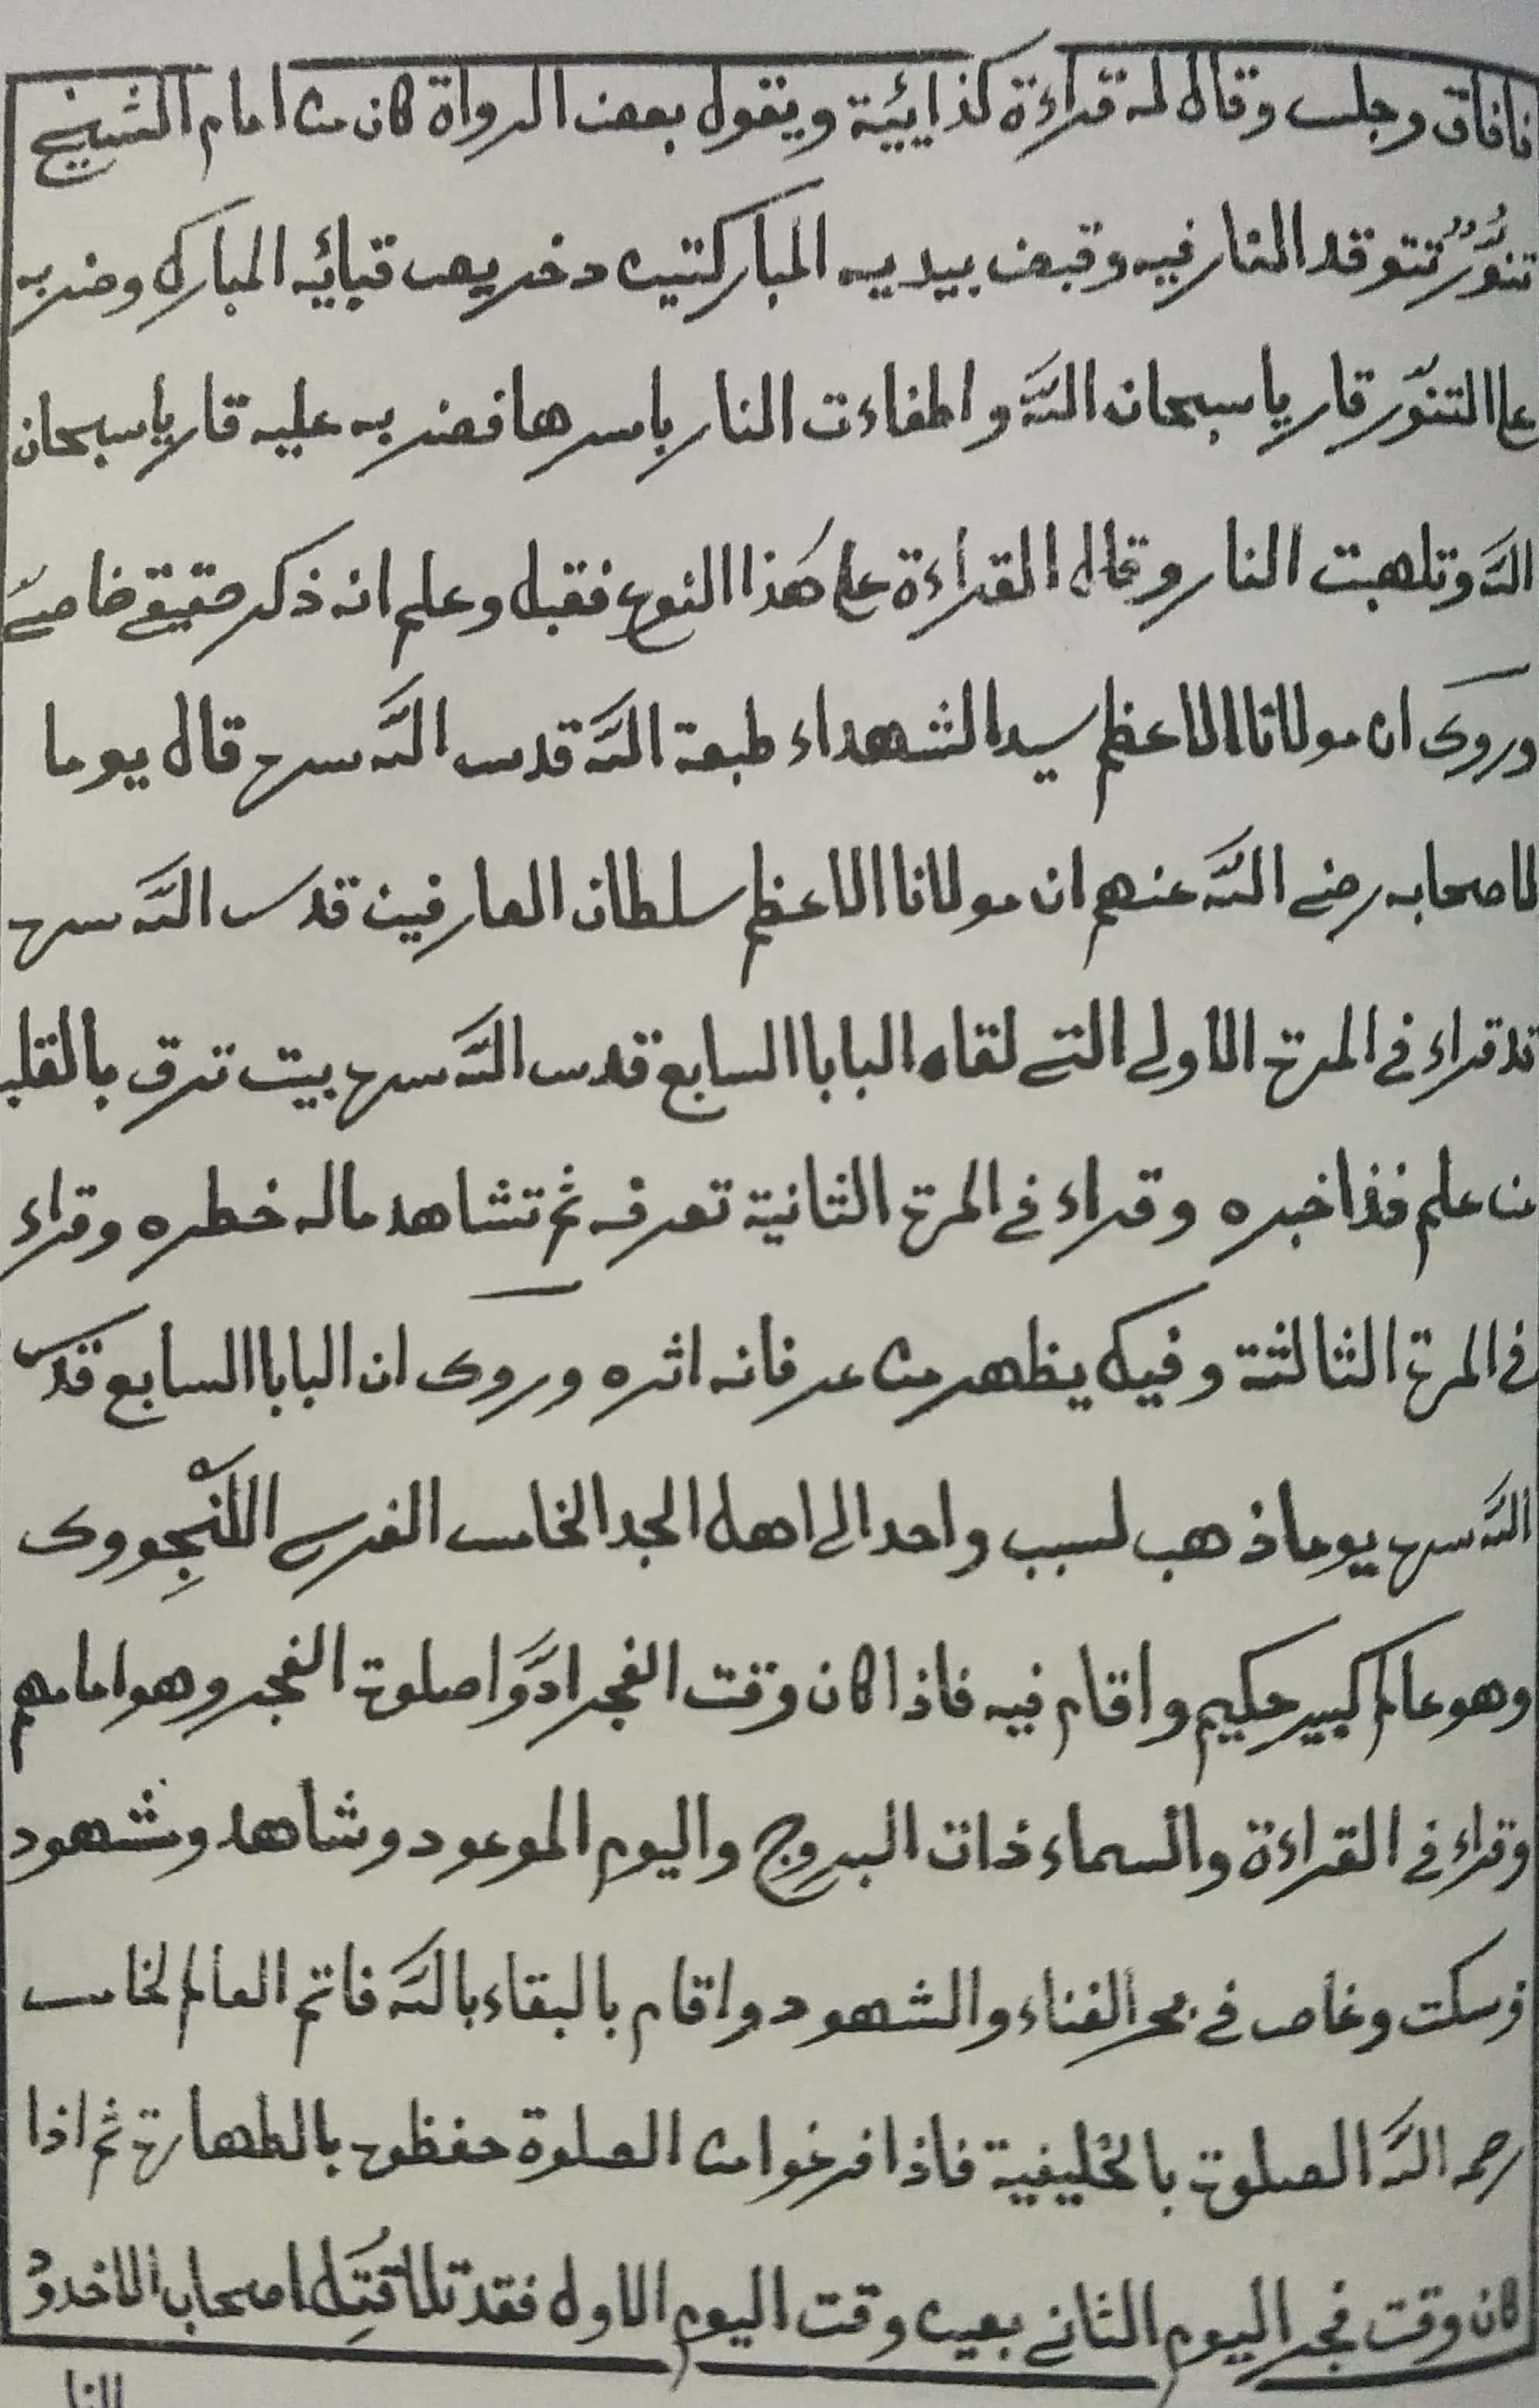 فافاق وجلس وقال له قراءة كذايئية ويقول بعض الرواة كان من امام الشيخ
تنوّرٌ تتوقد النار فيه وقبض بيديه المباركتين دخريص قبائه المبارك وضربه
على التنوّر قار يا سبحان الله واطفاءت النار باسرها فضربه عليه قار يا سبحان
الله وتلهبت النار وقال القراءة على هَذا النوع فقبل وعلم انه ذكر حقيقے خاصے
وروى ان مولانا الاعظم سيد الشهداء طبعة الله قدس الله سره قال يوما
لاصحابه رضے الله عنهم ان مولانا الاعظم سلطان العارفين قدس الله سره
قد قراء فى المرة الاولى التے لقاه البابا السابع قدس الله سره بيت ترق بالقلب
من علم فذا خبره وقراء فے المرة الثانية تعرفه ثم تشاهد ماله خطره وقراء
فى المرة الثالثة وفيك يظهر من عرفانه اثره وروى ان البابا السابع قدس
الله سره يوما ذهب لسبب واحد الى اهل الجد الخامس الغرسے اللَنْجِووى
وهو عالم كبير حكيم واقام فيه فاذا كان وقت الفجر ادَّوا صلوة الفجر وهو امامهم
وقراء فے القراءة والسماء ذات البروج واليوم الموعود وشاهد ومشهود
فسكت وغاص فے بحر الفناء والشهود واقام بالبقاء بالله فاتم العالم لخامس
رحمه الله الصلوة بالخليفية فاذا فرغوا من الصلوة حفظوه بالطهارة ثم اذا
كان وقت فجر اليوم الثانے بعين وقت اليوم الاول فقد تلا قُتِلَ اصحاب الاخدودِ
النار